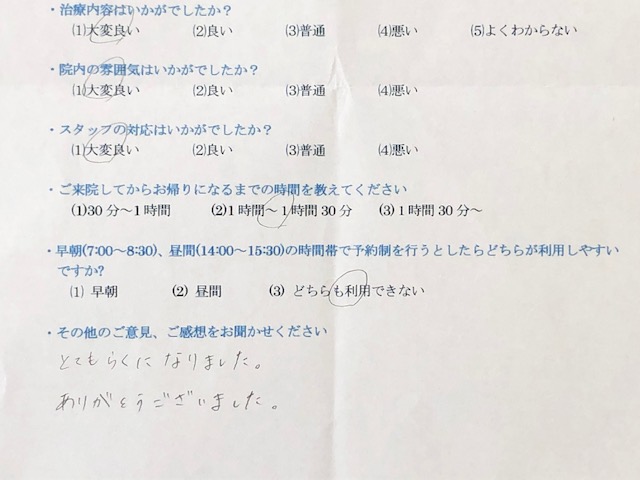 ・治療内容はいかがでしたか？
⑴大変良い ⑵良い ⑶普通 ⑷悪い ⑸よくわからない
・院内の雰囲気はいかがでしたか？
⑴大変良い ⑵良い ⑶普通 ⑷悪い
・スタッフの対応はいかがでしたか？
⑴大変良い ⑵良い ⑶普通 ⑷悪い
・ご来院してからお帰りになるまでの時間を教えてください
(1)30分～1時間 (2)1時間～1時間30分 (3)1時間30分～
・早朝(7:00～8:30)、昼間(14:00～15:30)の時間帯で予約制を行うとしたらどちらが利用しやすい
ですか?
⑴ 早朝 (2) 昼間 (3) どちらも利用できない
・その他のご意見、ご感想をお聞かせください
とてもらくになりました。
ありがとうございました。